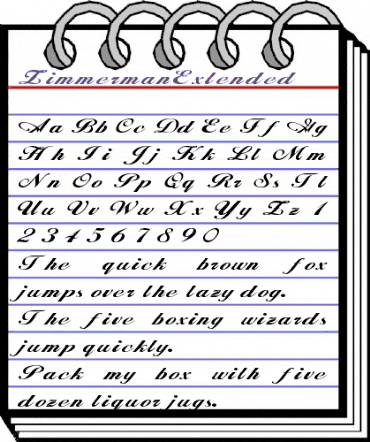 ZimmermanExtended
Aa Bb Cc Dd Ee Ff Gg
Hh Ii Jj Kk Ll Mm
Nn Oo Pp Qq Rr Ss Tt
Uu Vv Ww Xx Yy Zz 1
2 3 4 5 6 7 8 9 0
The quick brown fox
jumps over the lazy dog.
The five boxing wizards
jump quickly.
Pack my box with five
dozen liquor jugs.